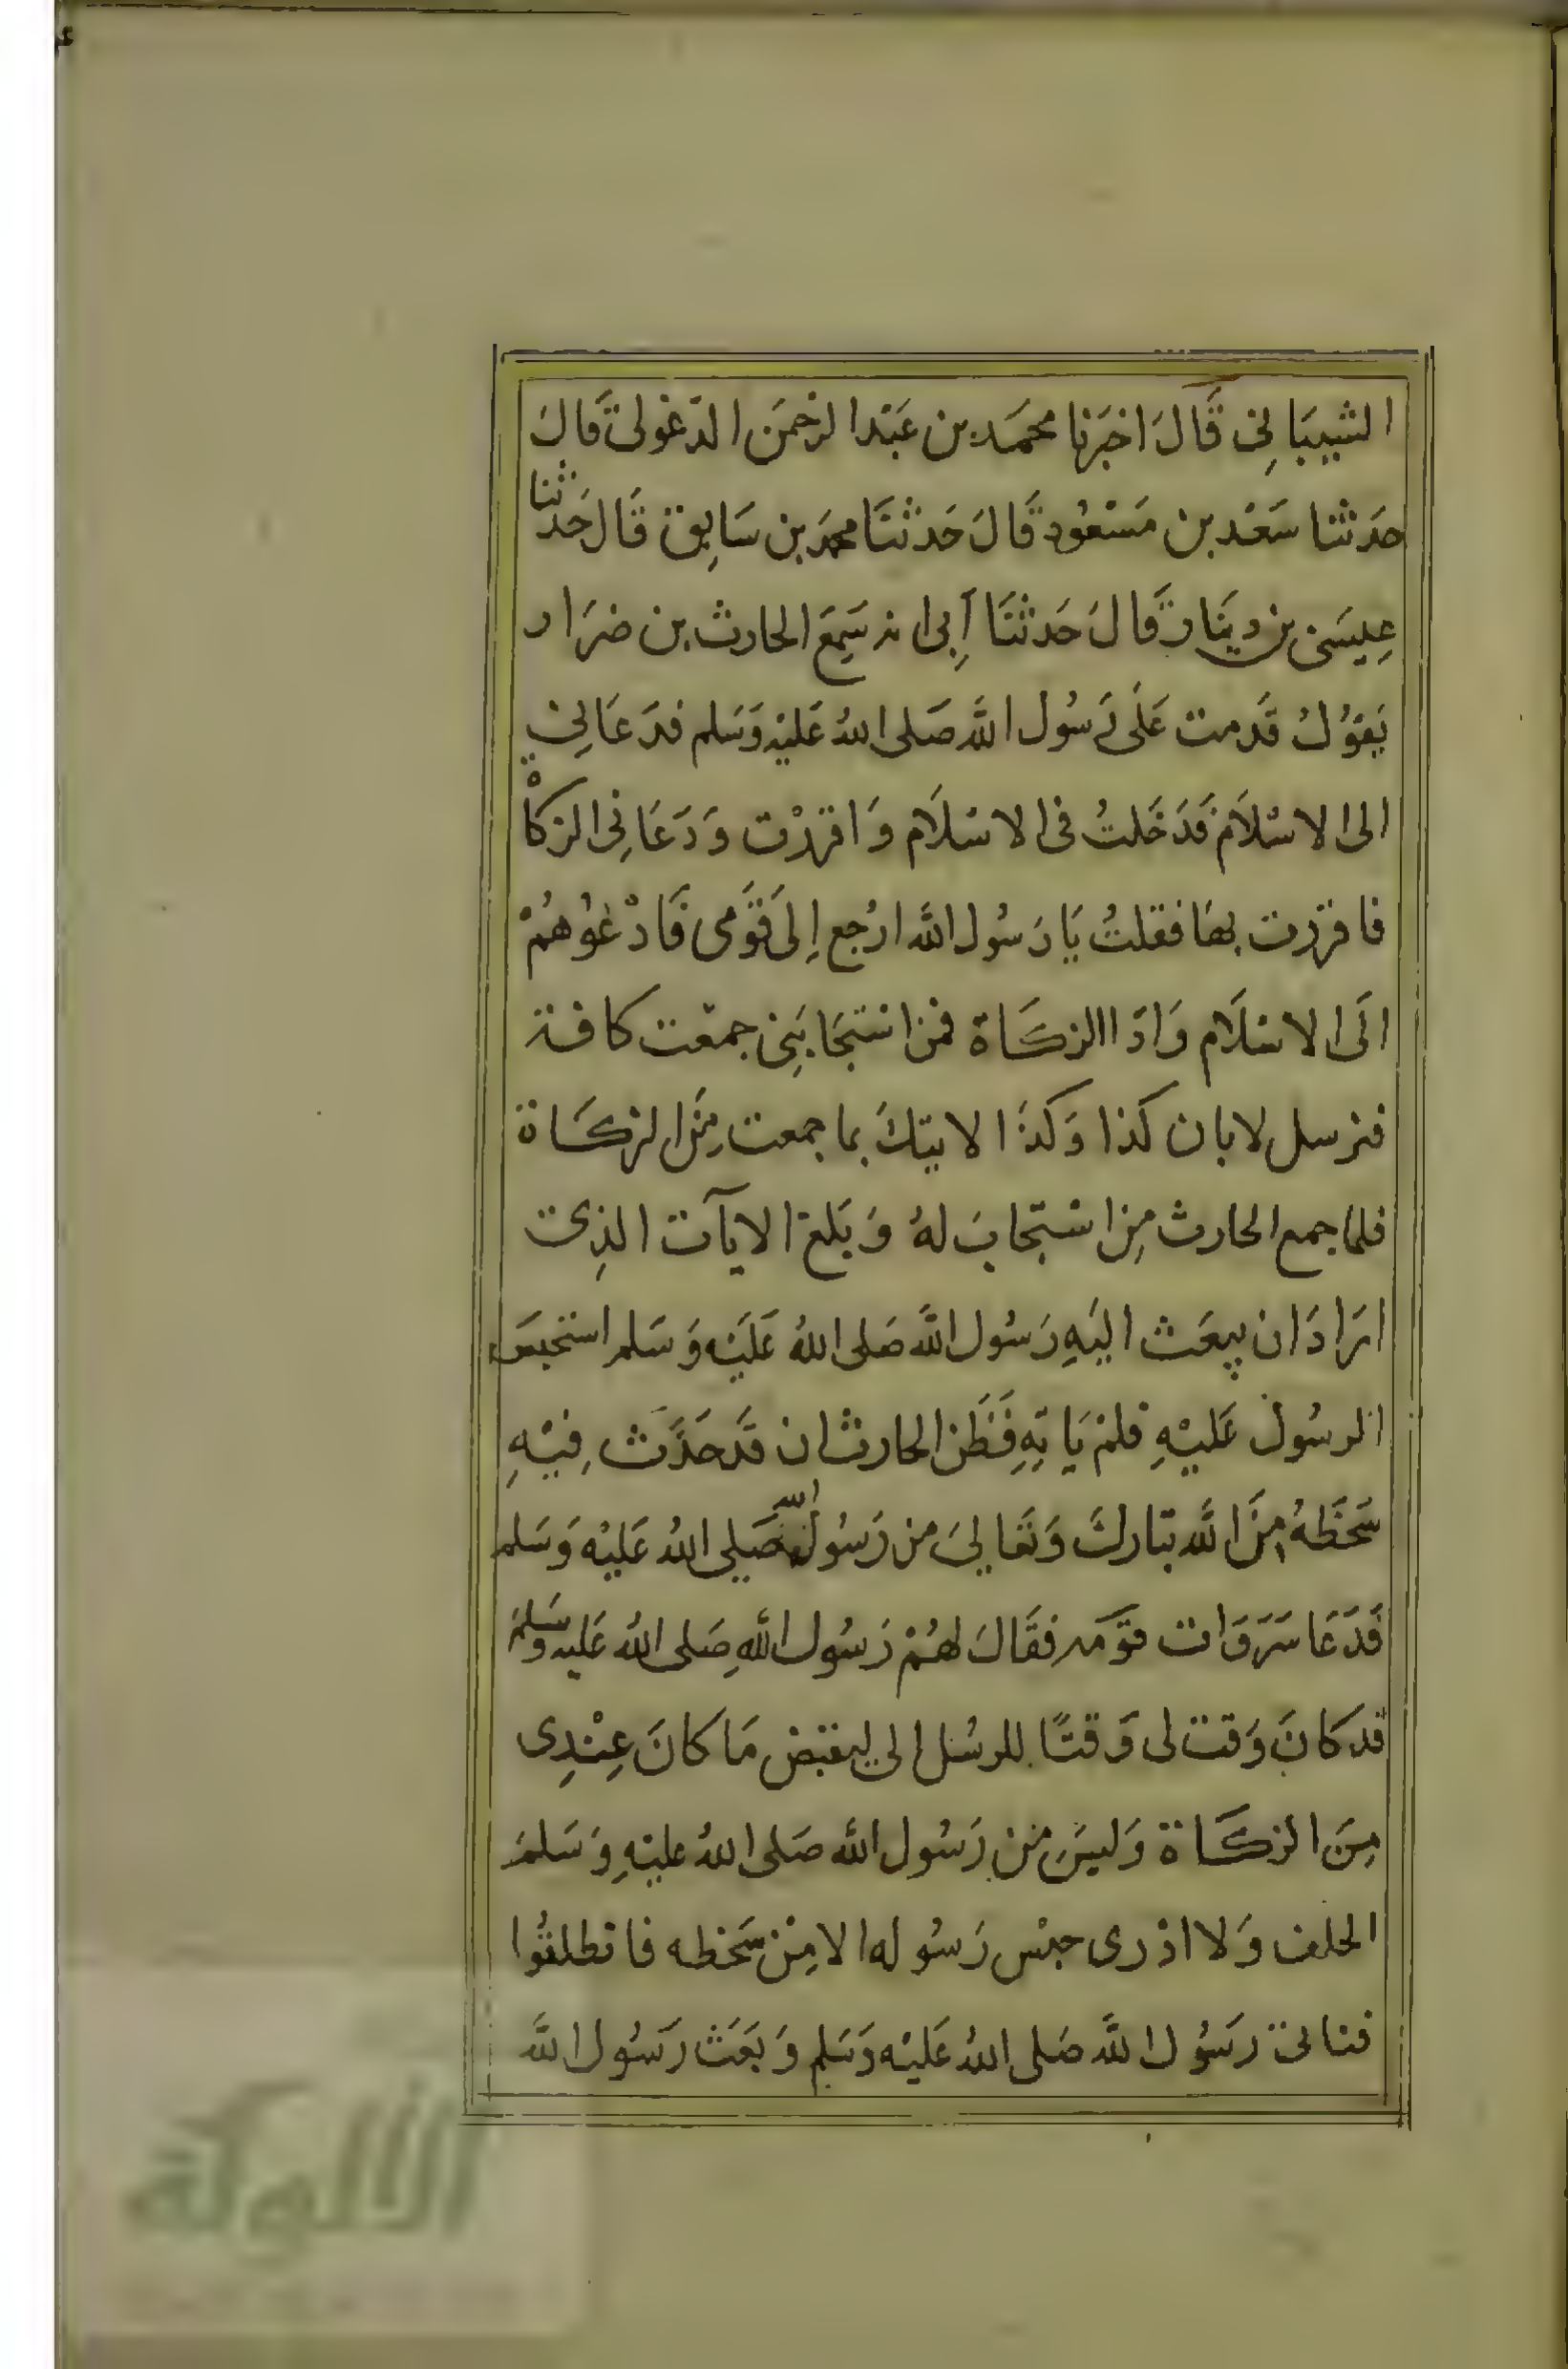 الشيبَاني قَالَ اخبَرنا محمَد بن عَبْد الرحْمَن الدّغولى قَال
حَدثنا سَعْد بن مَسْعُود قَالَ حَدثنَا محمَد بن سَابِق قَال حَدثنا
عِيسَى بن دينَار قَالَ حَدثنَا أبِى انه سَمِعَ الحارث بن ضرَار
يَقوُلُ قَدمت عَلَى رَسُول اللَّه صَلى اللهُ عَليْه وَسَلم فدَعَانِي
الى الاسْلاَم فَدَخَلتُ فى الاسْلاَم وَاقررْت وَدَعَانِى الزكاْة
فاقررت بهَا فقلتُ يَا رَسُول اللَّه ارْجع إلَى قَوَمى فَادْعُوهُمْ
الَى الاسْلَام وَادَاالزكَاة فمن اسْتجَابَنِى جمعْت كافة
فترسل لابان كذا وَكذَا لاتيتكَ بما جمعت مِنَ الزكَاة
فلما جمع الحارث مِن اسْتجَابَ لهُ وَبَلغ الايآت الذِى
ارَادَ ان يبعَث اليَهِ رَسُول اللَّه صَلى اللهُ عَلَيْه وَسَلم استحبسَ
الرسُول عَليْهِ فلمْ يَاتِهِ فَظَن الحارث ان قَد حَدَث فِيْهِ
سَخَطهُ مِنَ اللَّه تبَاركَ وَتعَالىَ من رَسُول اللّه صَلى اللهُ عَليْه وَسَلم
فَدَعَا سَرَوَات قوَمه فقَالَ لهُمْ رَسُول اللَّهِ صَلى اللهُ عَليه وسَلمَ
قد كَانَ وَقت لى وَقتًا للرسْل الى ليقبض مَا كانَ عِنْدِى
مِنَ الزكَاة وَليسَ من رَسُول اللَّه صَلى اللهُ عليْهِ وَسَلمَ
الخلف وَلا ادْرى حبْس رَسُوله الا مِنْ سَخطه فانطلقُوا
فناتى رَسُول اللَّه صَلى اللهُ عَليْه وَسَلم وَبَعَث رَسُول اللَّه
الألوكة